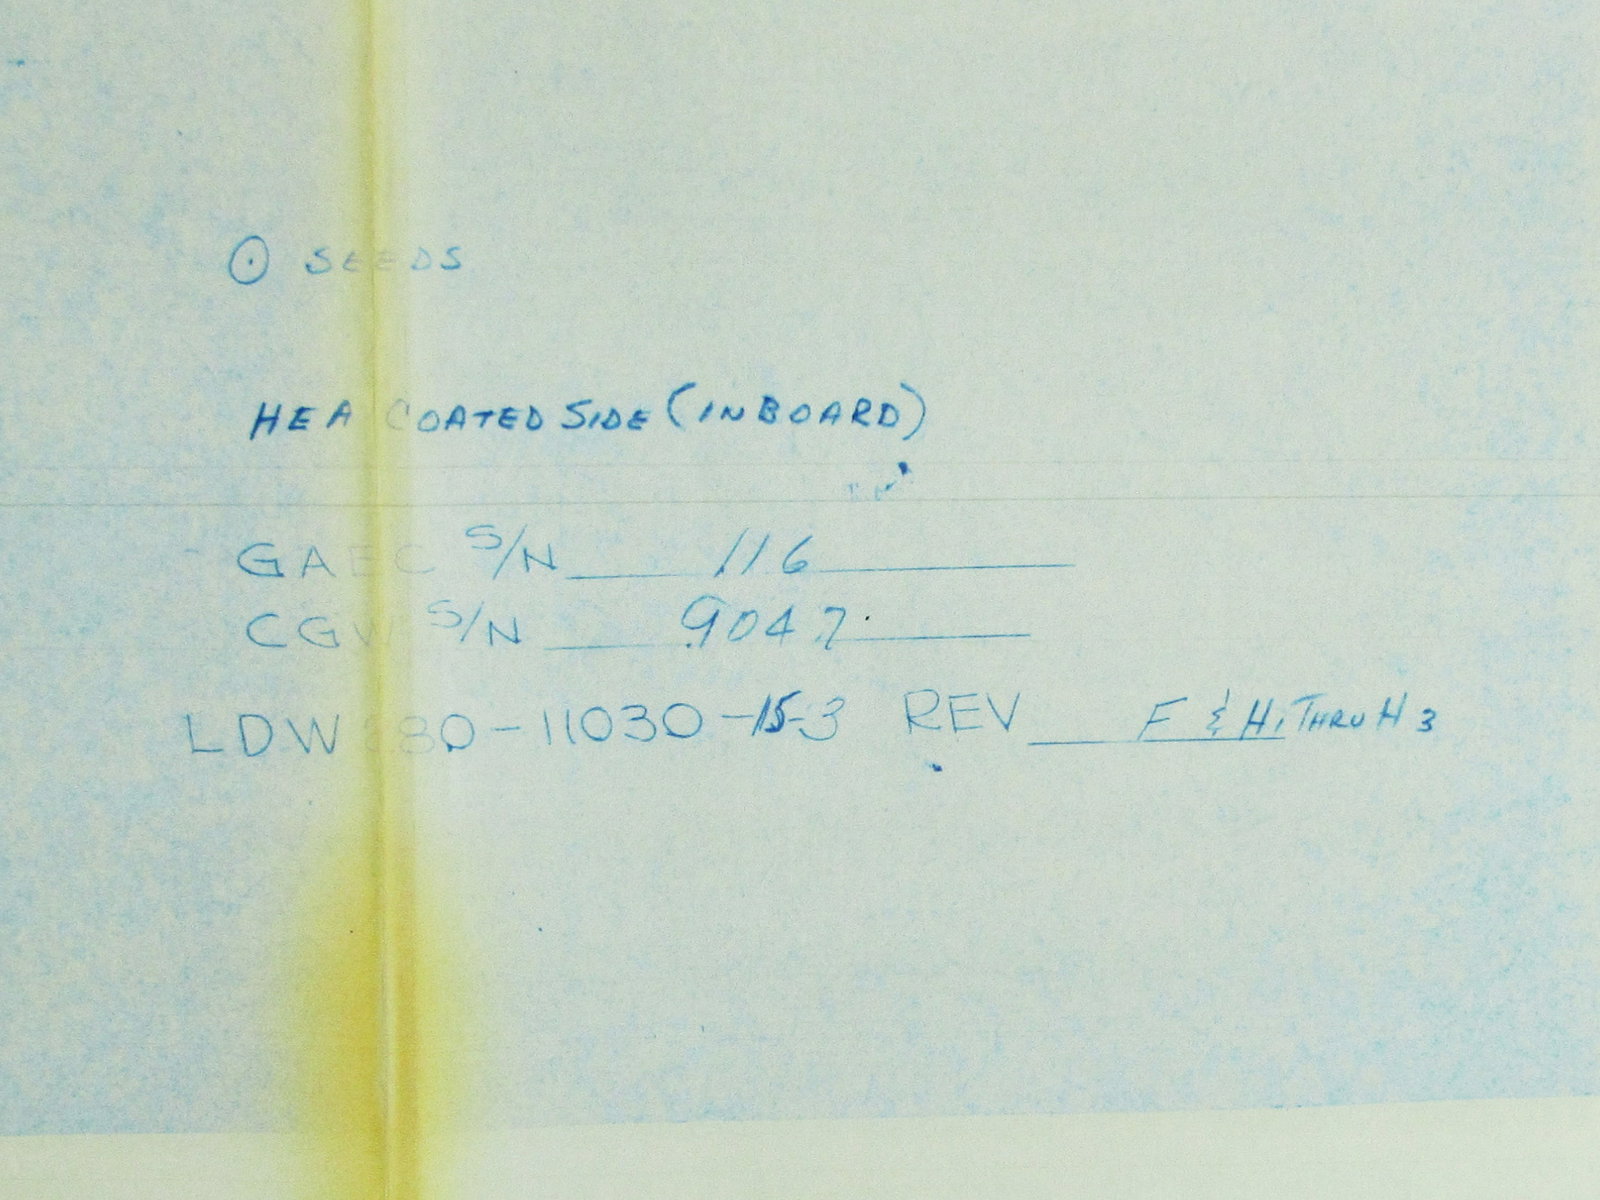 ⊙ SEEDS
HEA COATED SIDE (INBOARD)
GAEC S/N 116
CGW S/N 9047
LDW 280-11030-15-3 REV F & H1 THRU H3